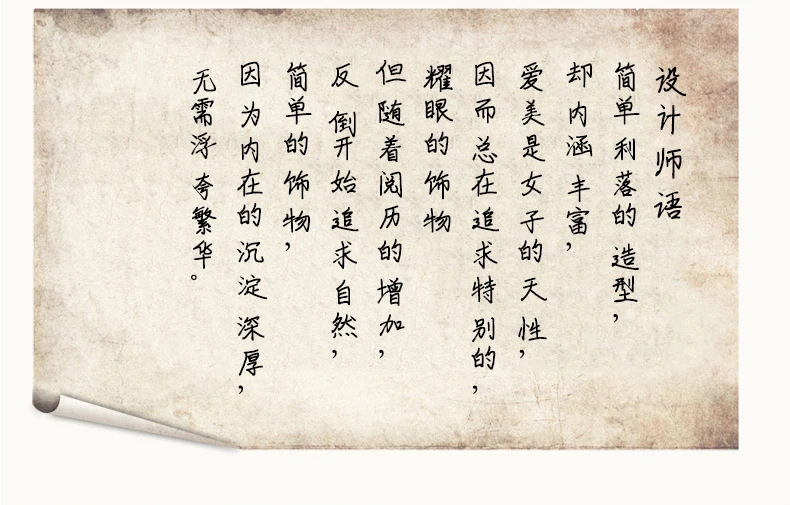 设计师语
简单利落的造型，
却内涵丰富，
爱美是女子的天性，
因而总在追求特别的，
耀眼的饰物
但随着阅历的增加，
反倒开始追求自然，
简单的饰物，
因为内在的沉淀深厚，
无需浮夸繁华。